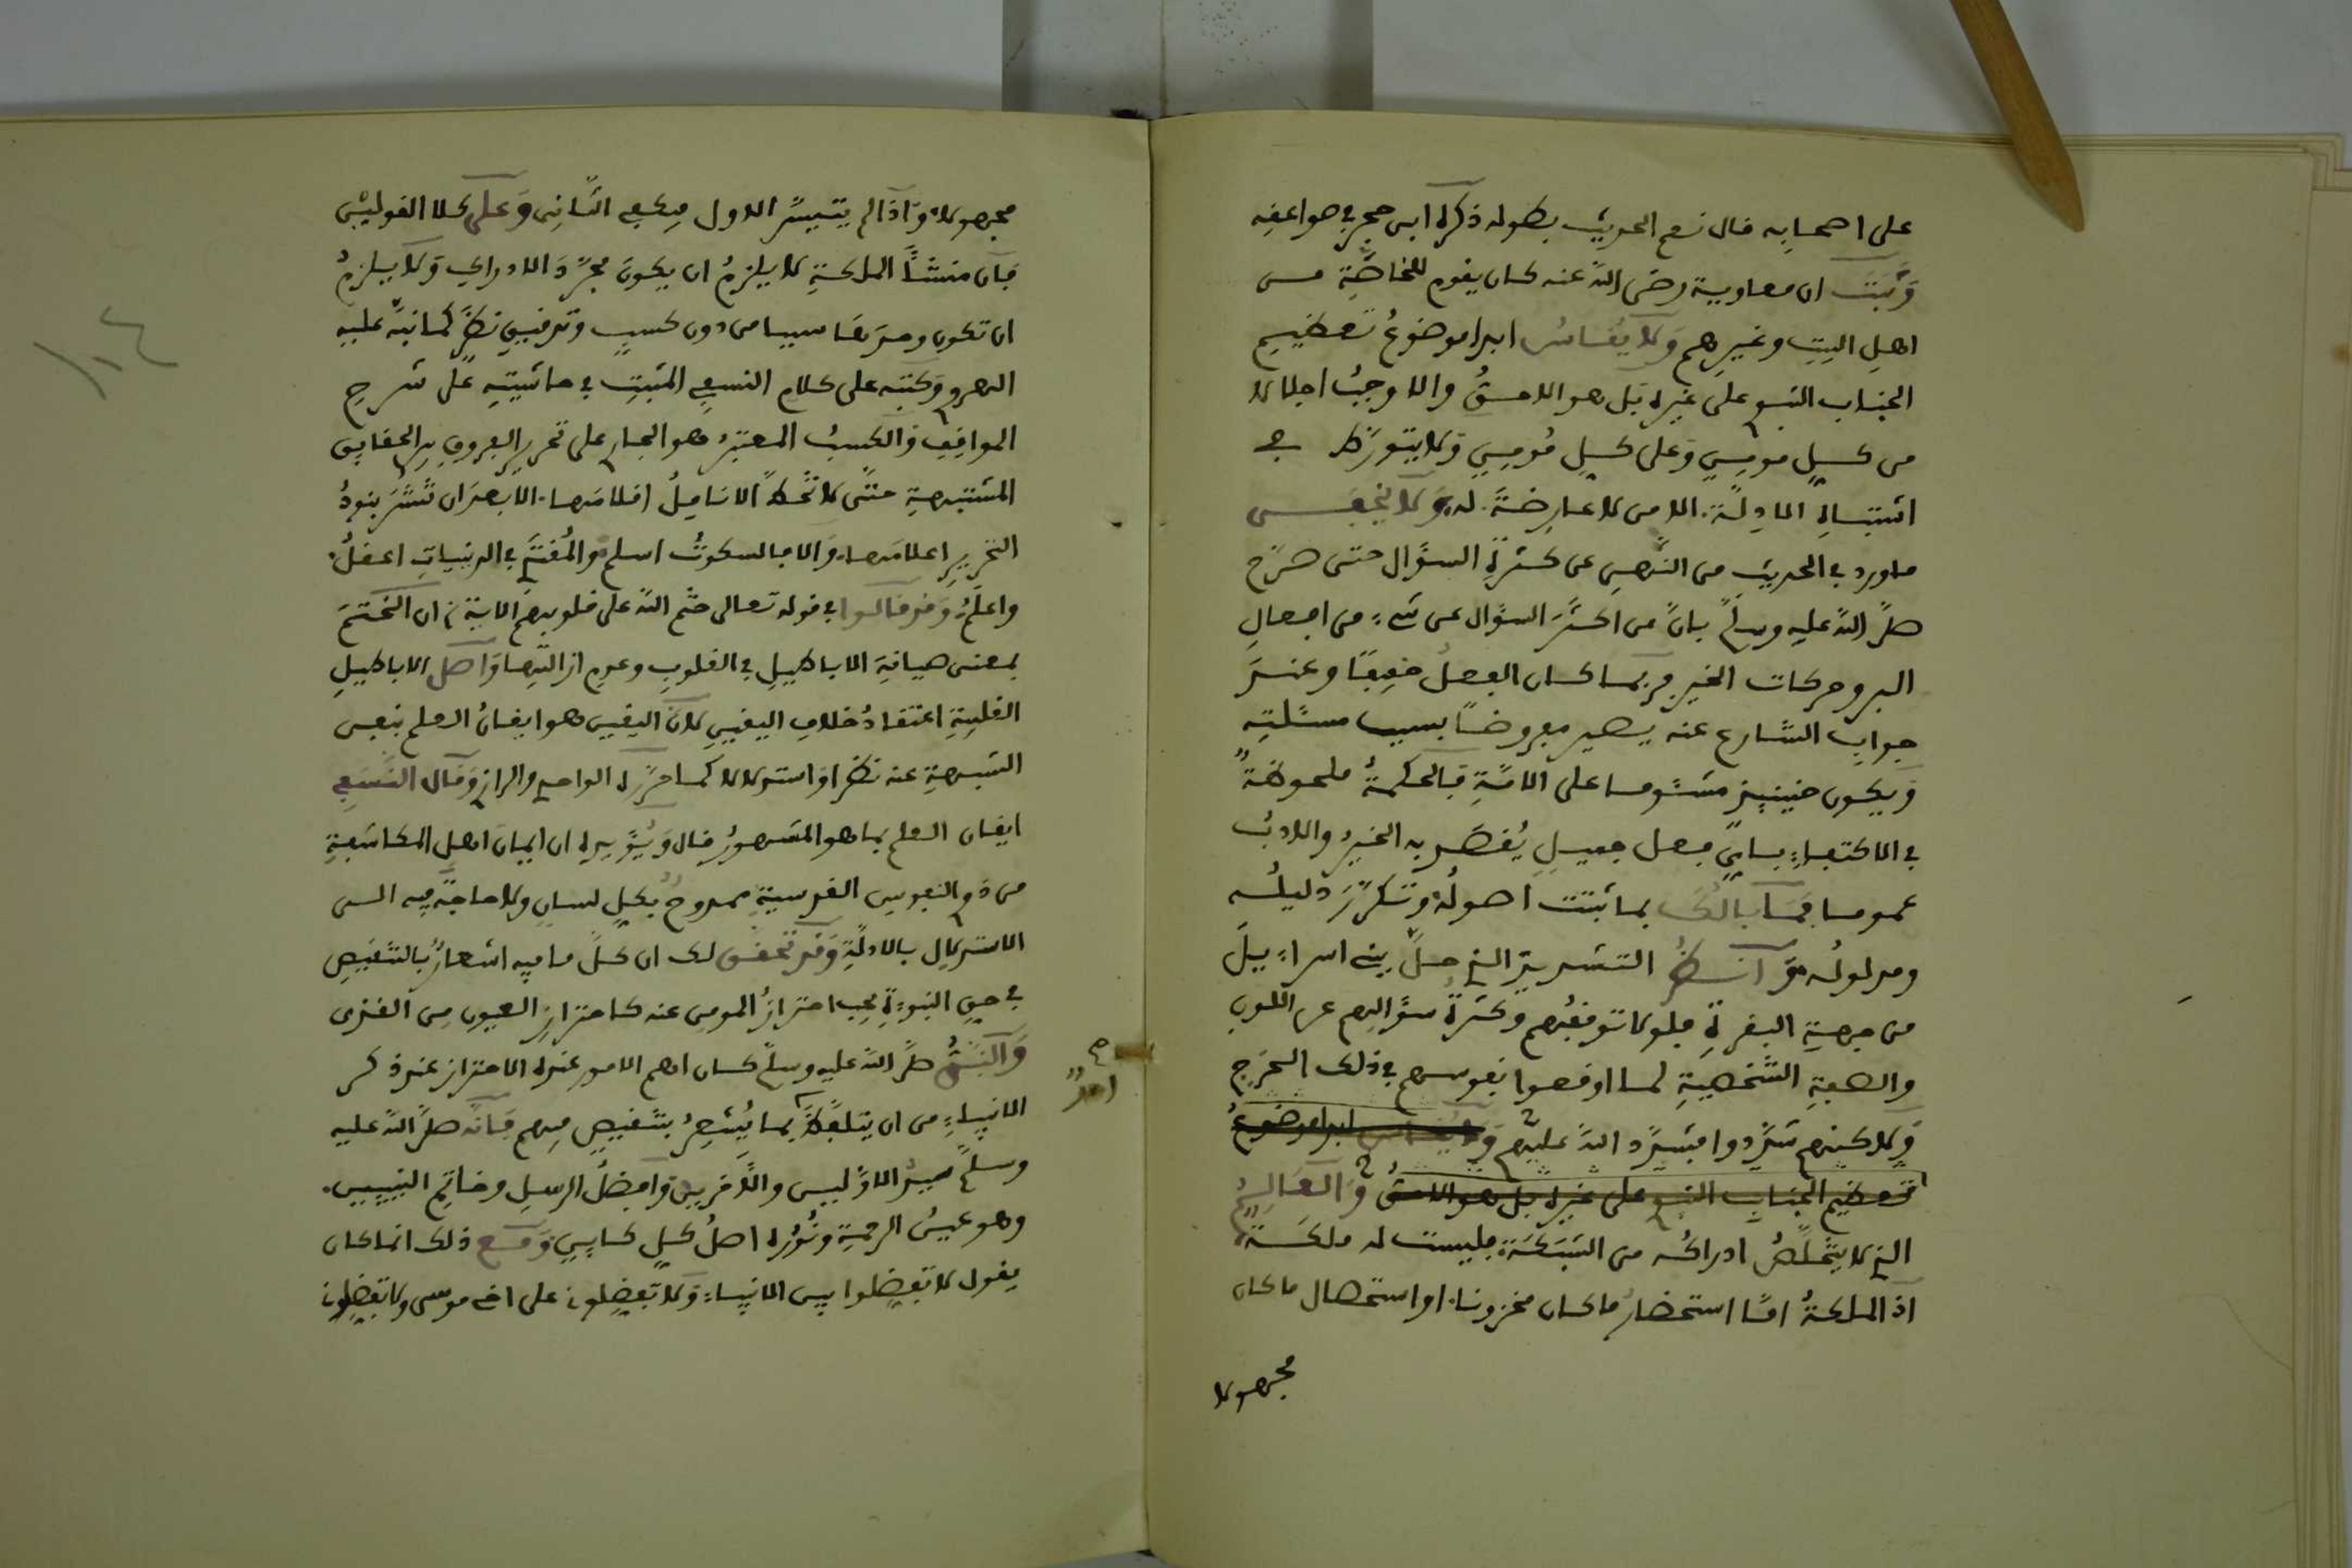 على اصحابه قال نعم الحديث بطوله ذكره ابن حجر في صواعقه
وثبت ان معاوية رضى الله عنه كان يقوم للخاصّة من
اهل البيت وغيرهم ولا يقاس ابدا موضوع تعظيم
الجناب النبوي على غيره بل هو الاحق والاوجب اجلالا
من كل مومن وعلى كل مومن ولا يتورّط في
اشتباه المادلّة الا من لا عارضة له ولا يخفى
ما ورد في الحديث من النّهي عن كثرة السؤال حتى صرّح
صلّى الله عليه وسلّم بانّ من اكثر السؤال عن شيء من افعال
البر وحركات الخير فربما كان الفعل خفيفا وعند
جواب الشارع عنه يصير مفروضا بسبب مسئلته
ويكون حينيذ مشئوما على الامّة فالحكمة ملحوظة
في الاكتفاء باي فعل جميل يُقصد به الخير والادب
عموما فما بالك بما ثبتت اصوله وتكرّر دليله
ومدلوله وانظر التشديد الذي حلّ ببني اسراءيل
من جهة البقرة فلولا توقفهم وكثرة سؤالهم عن اللون
والصفة الشخصية لما اوقعوا نفوسهم في ذلك الحرج
ولاكنهم شدّدوا فشدّد الله عليهم ولا يقاس ابدا موضوع
تعظيم الجناب النبوي على غيره بل هو الاحق والعالم
الذي لا يتخلّص ادراكه من الشبكة فليست له ملكة
اذ الملكة امّا استحضار ما كان مخزونا او استحصال ما كان
مجهولا
مجهولا واذا لم يتيسّر الاول فيكفي الثّاني وعلى كلا القولين
فان منشأ الملكة لا يلزم ان يكون مجرّد الادراك ولا يلزم
ان تكون ومرَضا سيبا من دون كسب وتدقيق نظر كما نبّه عليه
الهروي وكتبه على كلام النسفي المثبت في حاشيته على شرح
المواقف والكسب المعتبر هو الجاري على تحرير الفروق بين الحقايق
المشتبهة حتّى لا تخطّ الانامل اقلامها الا بعد ان تنشر بنود
التحرير اعلامها والا فالسكوت اسلم والمفتي في الدنييات اعقل
واعلم وقد قالوا في قوله تعالى ختم الله على قلوبهم الاية ان الختم
بمعنى صيانة الاباطيل في القلوب وعدم ازالتها واصل الاباطيل
القلبية اعتقاد خلاف اليقين لان اليقين هو ايقان العلم بنفي
الشبهة عنه نظرا او استدلالا كما حرّره الواحدي والرازي وقال النسفي
ايقان العلم بما هو المشهور قال ويؤيده ان ايمان اهل المكاشفة
من ذوي النفوس القدسية ممدوح بكل لسان ولا حاجة فيه الى
الاستدلال بالادلّة وقد تحقق لك ان كلّ ما فيه اشعار بالتنقيص
في حق النبوءة يجب احتراز المومن عنه كاحتراز العيون من القذى
والنبيّ صلّى الله عليه وسلّم كان اهم الامور عنده الاحتراز عند ذكر
الانبياء من ان يتلفّظ بما يُشعر بتنقيص فيهم فانّه صلّى الله عليه
وسلّم سيد الاوّلين والآخرين وافضل الرسل وخاتم النبيين
وهو عين الرحمة ونوره اصل كل كاين ومع ذلك انما كان
يقول لا تفضلوا بين الانبياء ولا تفضلوني على اخي موسى ولا تفضلوني